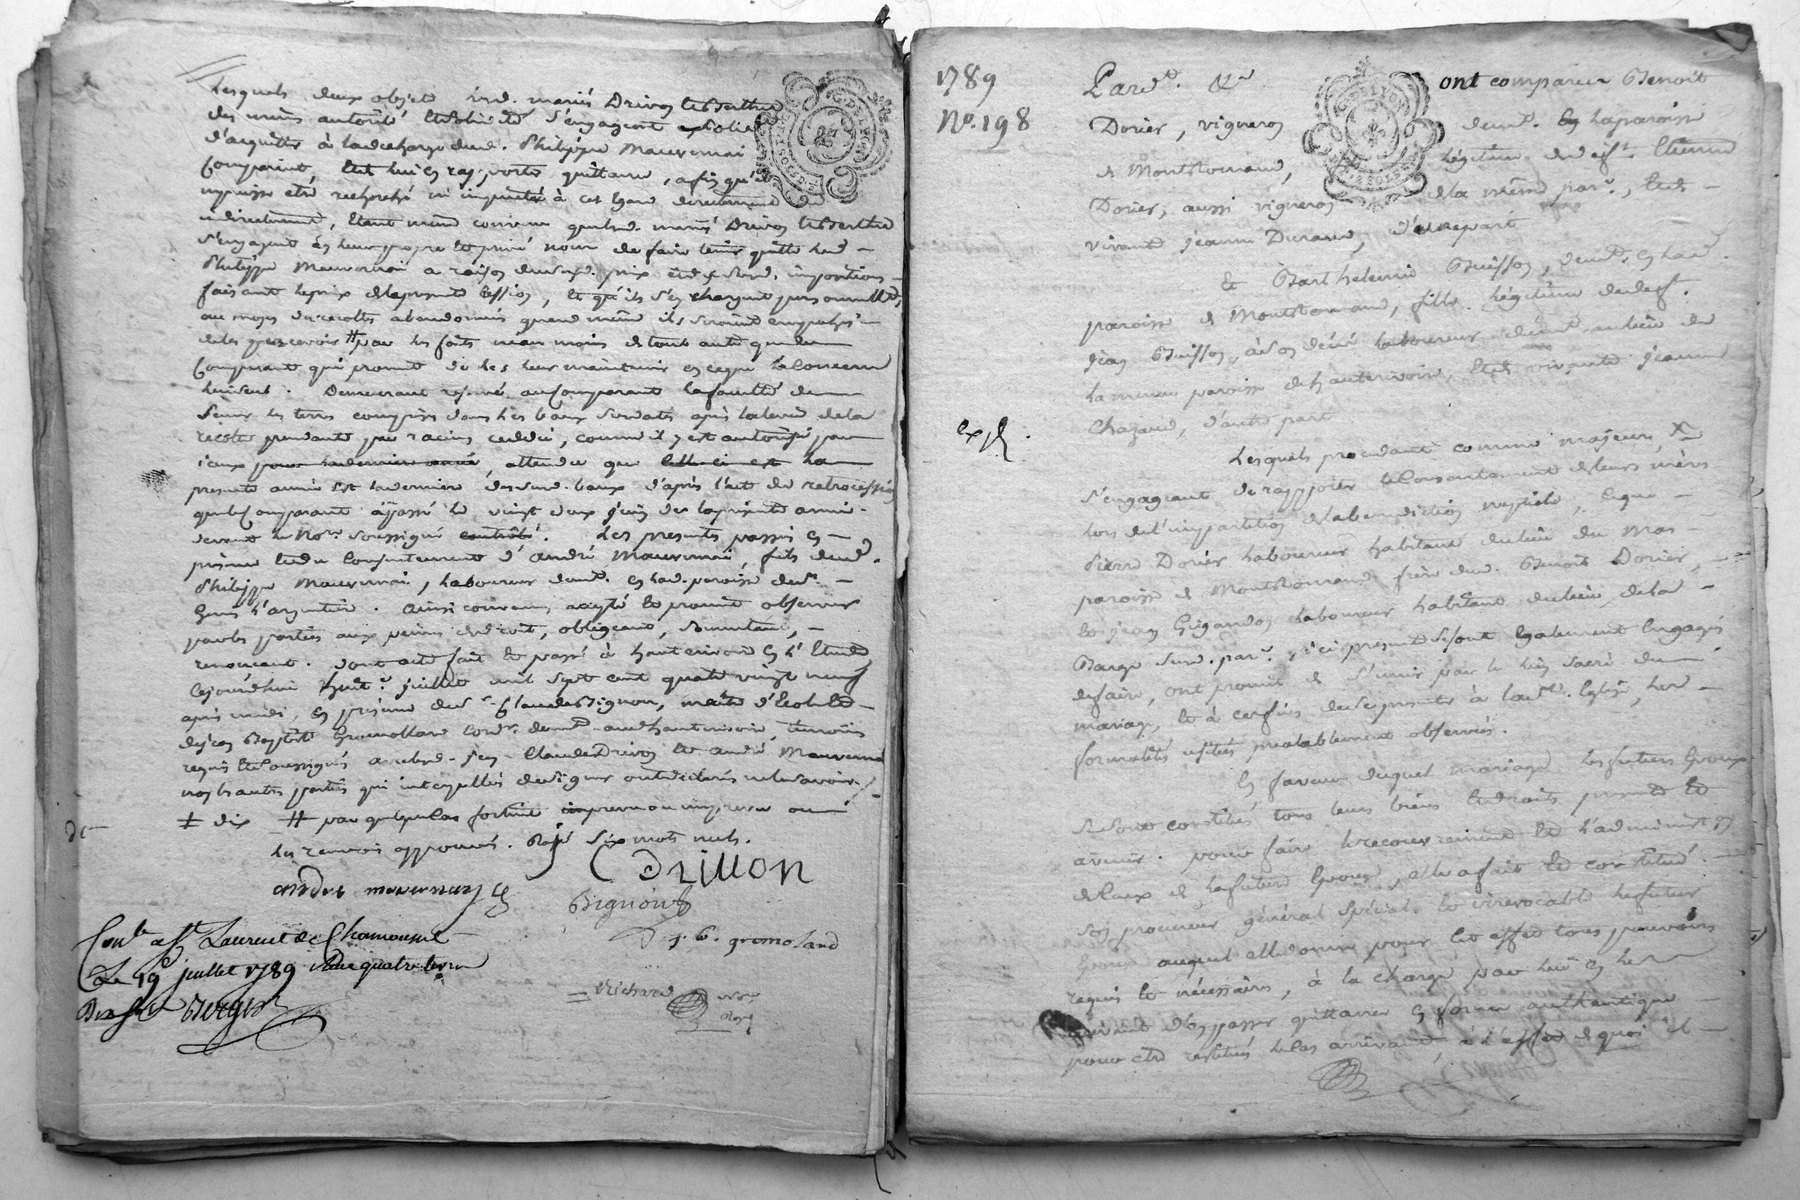 Lesquels deux objets lesd. mariés Drivon et Berthet
des mêmes autorité et solidité s'engagent et
d'acquitter à la décharge dud. Philippe Mauvernai
Comparant, et lui en rapporter quittance, afin qu'il
n'puisse être recherché ni inquiété à cet égard directement ou
indirectement, étant même convenu que lesd. mariés Drivon et Berthet
s'engagent en leur propre et privé nom de faire tenir quitte led.
Philippe Mauvernai a raison dud. prix et impositions
faisant le prix de la présente cession, et qu'ils s'en chargent personnellement,
au moyen des récoltes abandonnés quand même ils seroient empêchés
de les percevoir # par les faits néanmoins de tout autre que du
Comparant qui promet de les leur maintenir en ce qui le concerne
lui seul. Demeurant réservé au Comparant la faculté de
semer les terres comprises dans les baux susdats après la levée de la
récolte pendante par racines, comme il y est autorisé par
iceux pour la dernière année, attendu que celle ci est la
présente année est la dernière desd. baux d'après l'acte de retrocession
que le Comparant a passé le vingt deux juin de la présente année
devant le Nore. soussigné controllé. Les présentes passées en
présence et du consentement d'andré Mauvernai, fils dud.
Philippe Mauvernai, laboureur demt. en lad. paroisse de St.
Genis l'argentière. Ainsi convenu, accepté et promis observer
par les parties aux peines de droit, obligeant, soumettant,
renonçant. Dont acte fait et passé à hauterivoire en l'Etude
cejourd'hui huit. juillet mil sept cent quatre vingt neuf
après midi, en présence de sr. Claude Bignon, maître d'école et
de jean Baptiste Gromollard cordr. demt. aud. hauterivoire, témoins
requis et soussignés avec led. Claude Drivon et andré Mauvernai
non les autres parties qui interpellées de signer ont déclaré ne le savoir.
‡ dix # par quelque cas fortuit imprevu ou
les renvois approuvés. Rayé six mots nuls.
andré mauvernay C Drivon
Bignon
j. b. gromolard
Richard Nore.
Royal
Conlé. a St. Laurent de Chamousset
Le 19 juillet 1789
Berger
1789
No. 198
Pardt. &a ont comparu Benoit
Dorier, vigneron demt. en la paroisse
de Montromand, légitime de deft. Etienne
Dorier, aussi vigneron de la même parr., et de
vivante jeanne Durand, d'une part
Et Barthelemie Buisson, demt. en lad.
paroisse de Montromand, fille légitime de deft.
jean Buisson, à son décès laboureur demt. au lieu de
la même paroisse de hauterivoire, et de vivante jeanne
Chazaud, d'autre part
expé.
Lesquels procédant comme majeurs X
s'engageant de rapporter le consentement de leurs mères
lors de l'impartition de la bénédiction nuptiale, ce que
Pierre Dorier laboureur habitant du lieu du Mas
paroisse de Montromand frère dud. Benoit Dorier,
et jean Gigandon laboureur habitant du lieu de la
Barge susd. parr., ici présents se sont également engagés
de faire, ont promis de s'unir par le lien sacré du
mariage, et à ces fins de se présenter à la ste. Eglise, les
formalités usitées préalablement observées.
En faveur duquel mariage les futurs époux
se sont constitués tous leurs biens et droits présents et
avenir. pour faire le recouvrement et l'administron.
de ceux de la future épouse, elle a fait et constitué
son procureur général spécial et irrévocable le futur
époux auquel elle donne pour cet effet tous pouvoirs
requis et nécessaires, à la charge par lui en les
recevant d'en passer quittance en forme authentique
pour etre restitués le cas arrivant, à l'effet de quoi il